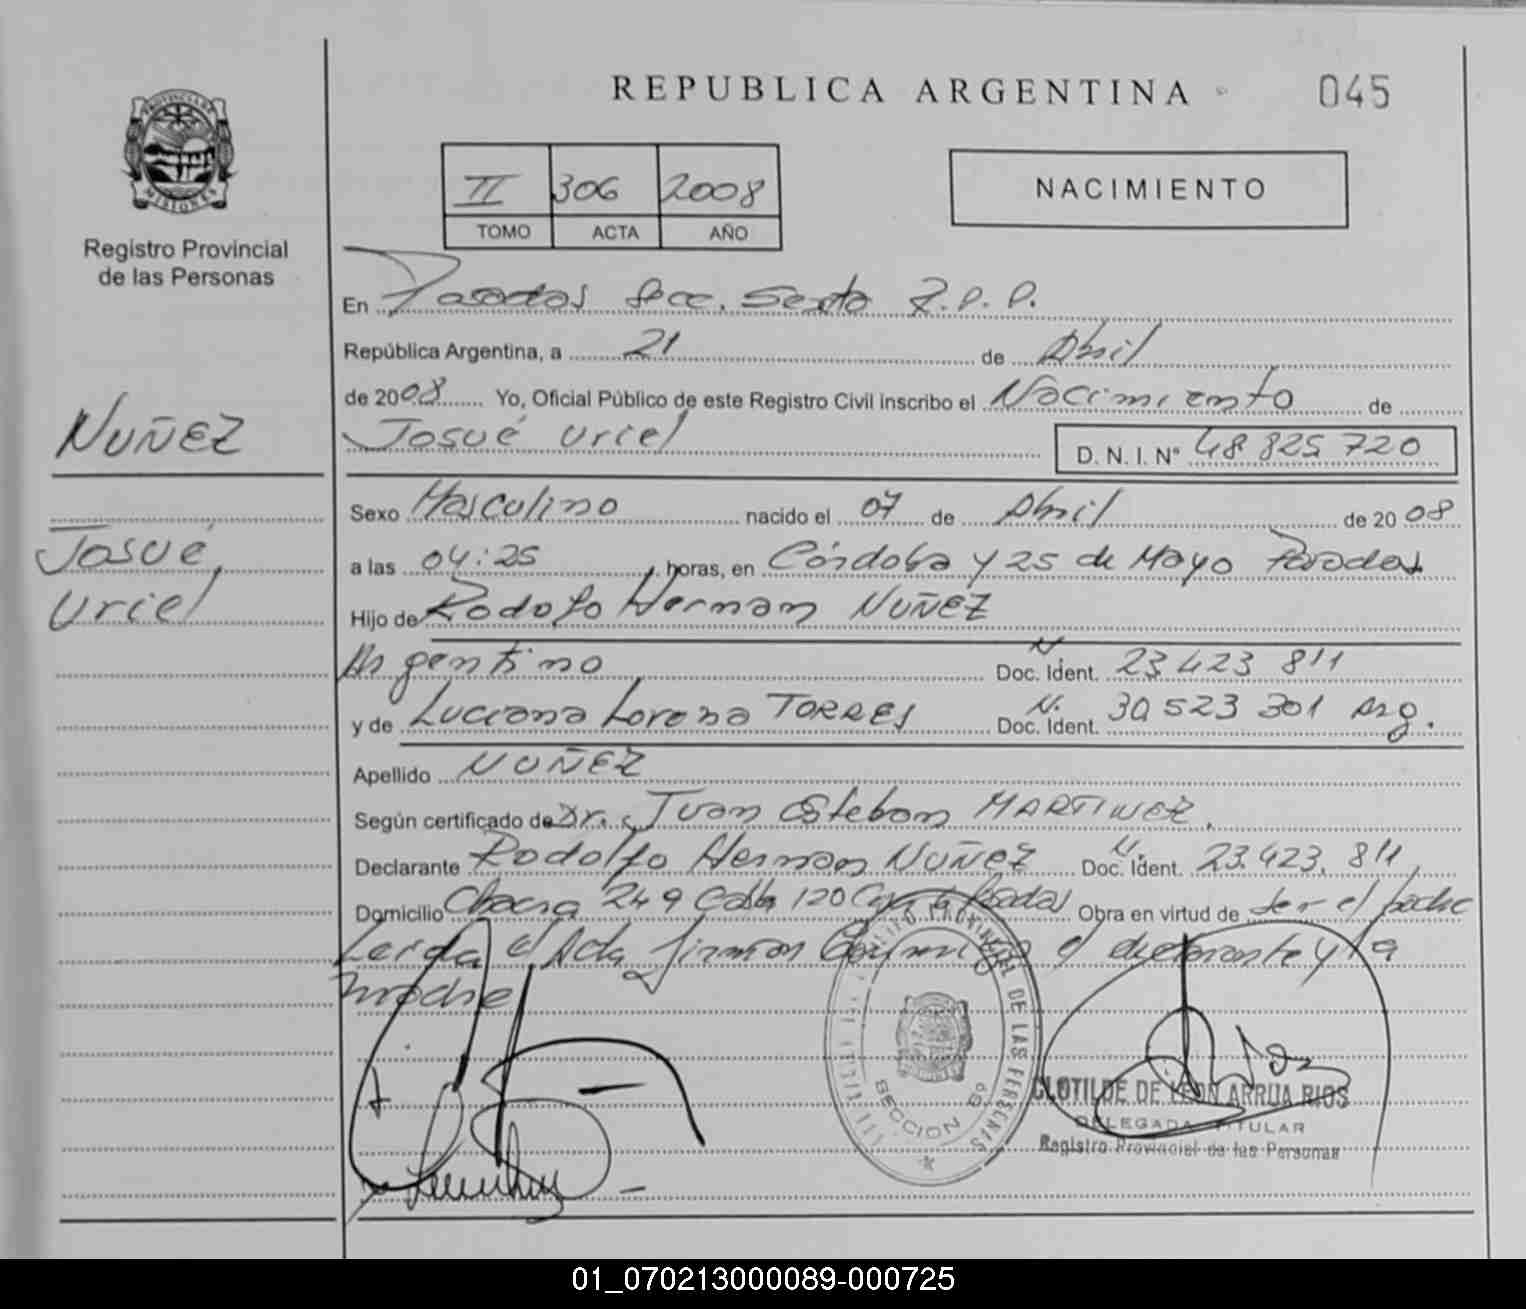 REPUBLICA ARGENTINA
045
PROVINCIA DE
MISIONES
Registro Provincial
de las Personas
II 306 2008
TOMO ACTA AÑO
NACIMIENTO
En Posadas Secc. Sexta R.P.P.
República Argentina, a 21 de Abril
de 2008 Yo, Oficial Público de este Registro Civil inscribo el Nacimiento de
Josué Uriel
D. N. I. N° 48 825 720
NUÑEZ
Josué,
Uriel
Sexo Masculino nacido el 07 de Abril de 20 08
a las 04:25 horas, en Córdoba y 25 de Mayo Posadas
Hijo de Rodolfo Hernan NUÑEZ
Argentino N Doc. Ident. 23 423 811
y de Luciana Lorena TORRES N. Doc. Ident. 30 523 301 Arg.
Apellido NUÑEZ
Según certificado de Dr. Juan Esteban MARTINEZ.
Declarante Rodolfo Hernan NUÑEZ N. Doc. Ident. 23.423.811
Domicilio Chacra 249 Calle 120 Posadas Obra en virtud de ser el padre
Leida el Acta firman conmigo el declarante y la
madre
REGISTRO PROVINCIAL DE LAS PERSONAS
SECCION 6º
CLOTILDE DE LEON ARRUA RIOS
DELEGADA TITULAR
Registro Provincial de las Personas
01_070213000089-000725